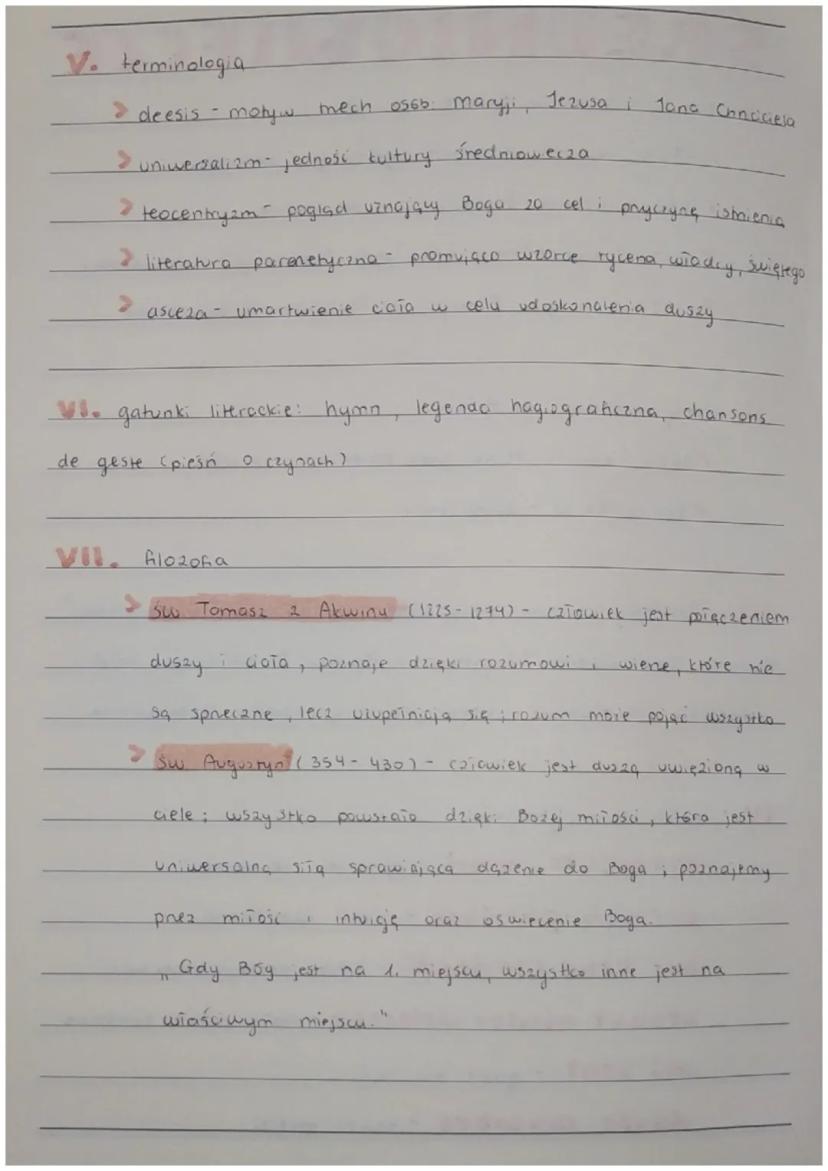 V. terminologia
> deesis - motyw trzech osób: Maryji, Jezusa i Jana Chrzciciela
> uniwersalizm - jedność kultury średniowiecza
> teocentryzm - pogląd uznający Boga za cel i przyczynę istnienia
> literatura parenetyczna - promująca wzorce rycerza, władcy, świętego
> asceza - umartwienie ciała w celu udoskonalenia duszy
VI. gatunki literackie: hymn, legenda hagiograficzna, chansons
de geste (pieśń o czynach)
VII. filozofia
> św. Tomasz z Akwinu (1225-1274) - człowiek jest połączeniem
duszy i ciała, poznaje dzięki rozumowi i wierze, które nie
są sprzeczne, lecz uzupełniają się; rozum może pojąć wszystko
> św. Augustyn (354 - 430) - człowiek jest duszą uwięzioną w
ciele; wszystko powstało dzięki Bożej miłości, która jest
uniwersalną siłą sprawiającą dążenie do Boga; poznajemy
przez miłość i intuicję oraz oświecenie Boga.
„Gdy Bóg jest na 1. miejscu, wszystko inne jest na
właściwym miejscu."